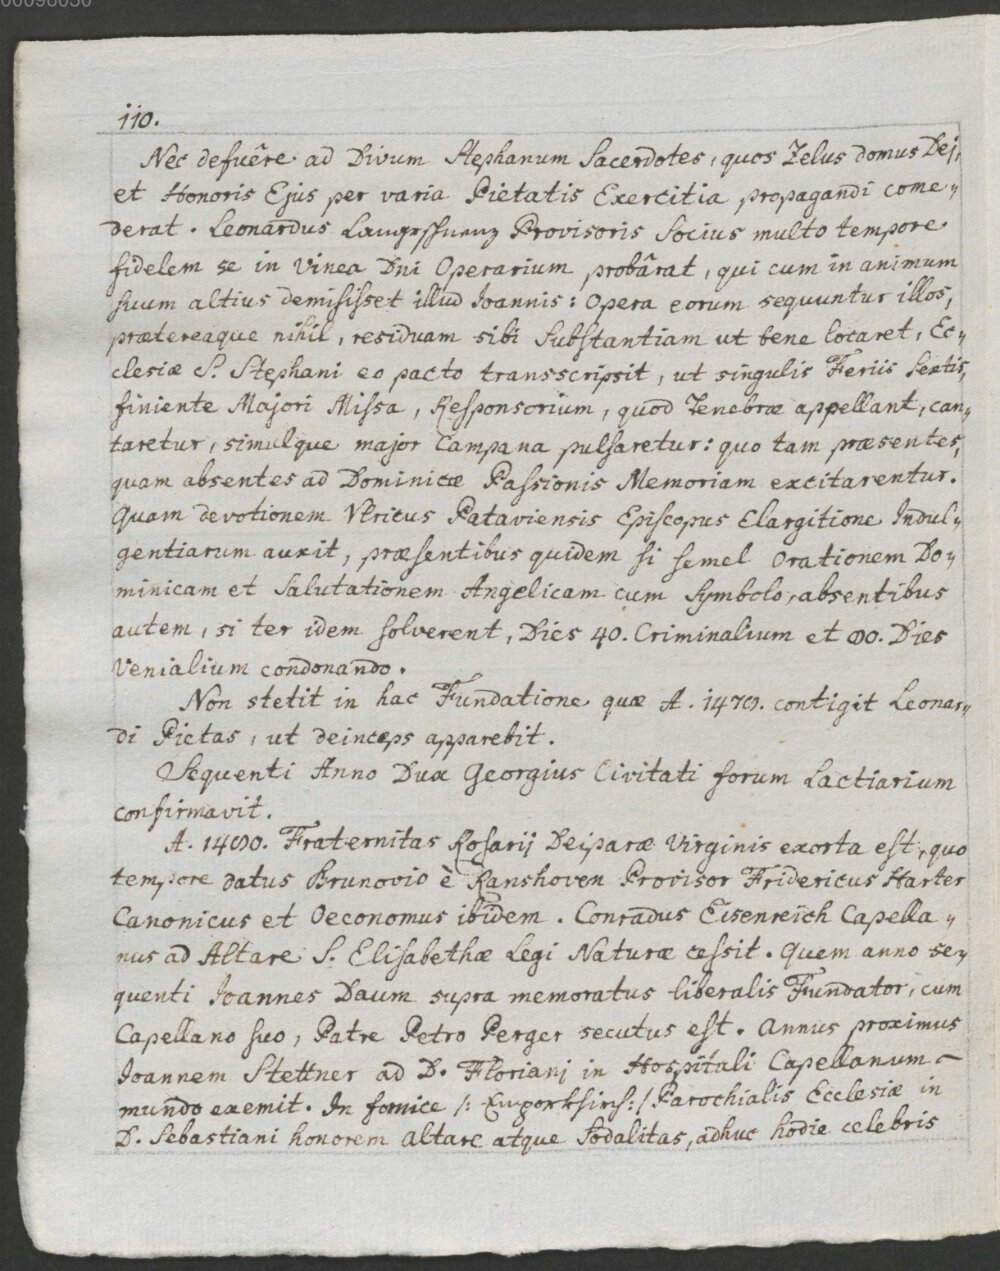 00096050
110.
Nec defuêre ad Divum Stephanum Sacerdotes, quos Zelus domus Dej,
et Honoris Ejus per varia Pietatis Exercitia propagandi come„
derat. Leonardus Provisoris Socius multo tempore
fidelem se in Vinea Dnj Operarium probârat, qui cum in animum
suum altius demisisset illud Joannis: Opera eorum sequuntur illos,
prætereaque nihil, residuam sibi Substantiam ut bene locaret, Ec„
clesiæ S. Stephani eo pacto transscripsit, ut singulis Feriis Sextis,
finiente Majori Missa, Responsorium, quod Tenebræ appellant, can„
taretur, simulque major Campana pulsaretur: quo tam præsentes,
quam absentes ad Dominicæ Passionis Memoriam excitarentur.
Quam devotionem Vlricus Pataviensis Episcopus Elargitione Indul„
gentiarum auxit, præsentibus quidem si semel Orationem Do„
minicam et Salutationem Angelicam cum Symbolo, absentibus
autem, si ter idem solverent, Dies 40. Criminalium et 80. Dies
Venialium condonando.
Non stetit in hac Fundatione quæ A. 1479. contigit Leonar„
di Pietas, ut deinceps apparebit.
Sequenti Anno Dux Georgius Civitati forum Lactiarium
confirmavit.
A. 1480. Fraternitas Rosarij Deiparæ Virginis exorta est, quo
tempore datus Brunovio è Ranshoven Provisor Fridericus Harter
Canonicus et Oeconomus ibidem. Conradus Eisenreich Capella„
nus ad Altare S. Elisabethæ Legi Naturæ cessit. Quem anno se„
quenti Joannes Daum supra memoratus liberalis Fundator, cum
Capellano suo, Patre Petro Perger secutus est. Annus proximus
Joannem Stettner ad D. Florianj in Hospitali Capellanum
mundo exemit. In fornice /: :/ Parochialis Ecclesiæ in
D. Sebastiani honorem Altare atque Sodalitas, adhuc hodie celebris